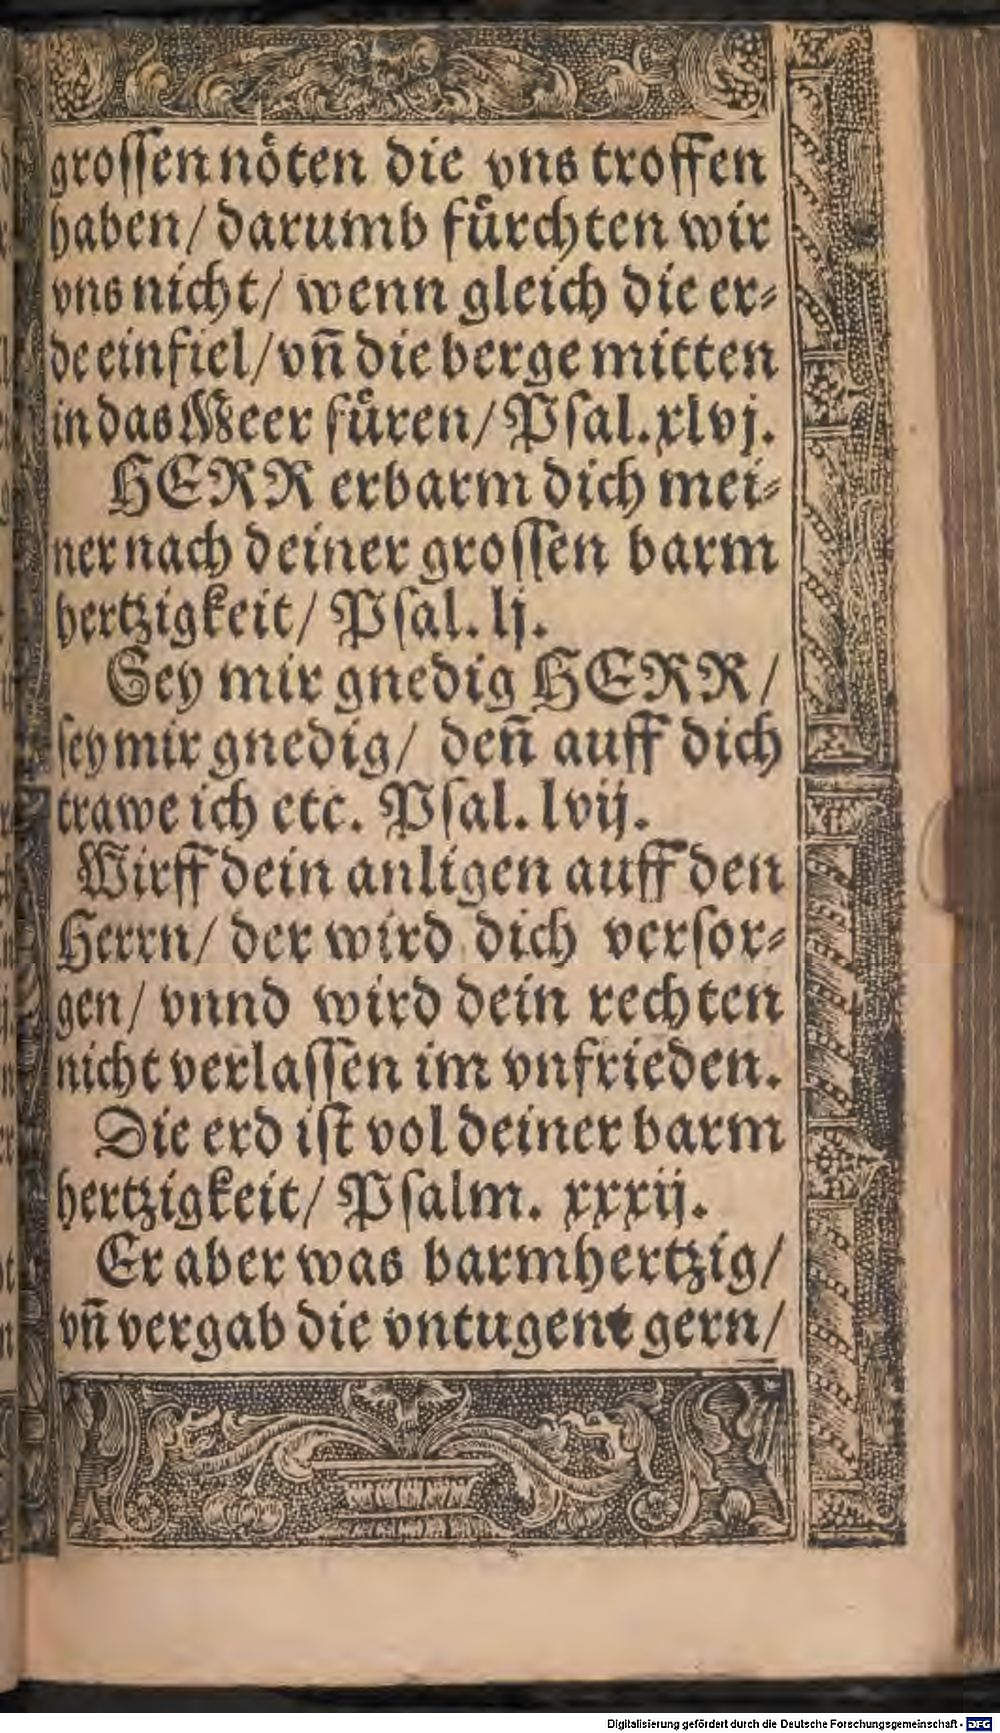 groſſen nöten die vns troffen
haben/ darumb fürchten wir
vns nicht/ wenn gleich die er⸗
de einfiel/ vn̄ die berge mitten
in das Meer füren/ Pſal. xlvj.
HERR erbarm dich mei⸗
ner nach deiner groſſen barm
hertzigkeit/ Pſal. lj.
Sey mir gnedig HERR/
ſey mir gnedig/ den̄ auff dich
trawe ich etc. Pſal. lvij.
Wirff dein anligen auff den
Herrn/ der wird dich verſor⸗
gen/ vnnd wird dein rechten
nicht verlaſſen im vnfrieden.
Die erd iſt vol deiner barm
hertzigkeit/ Pſalm. xxxij.
Er aber was barmhertzig/
vn̄ vergab die vntugent gern/
Digitalisierung gefördert durch die Deutsche Forschungsgemeinschaft - DFG